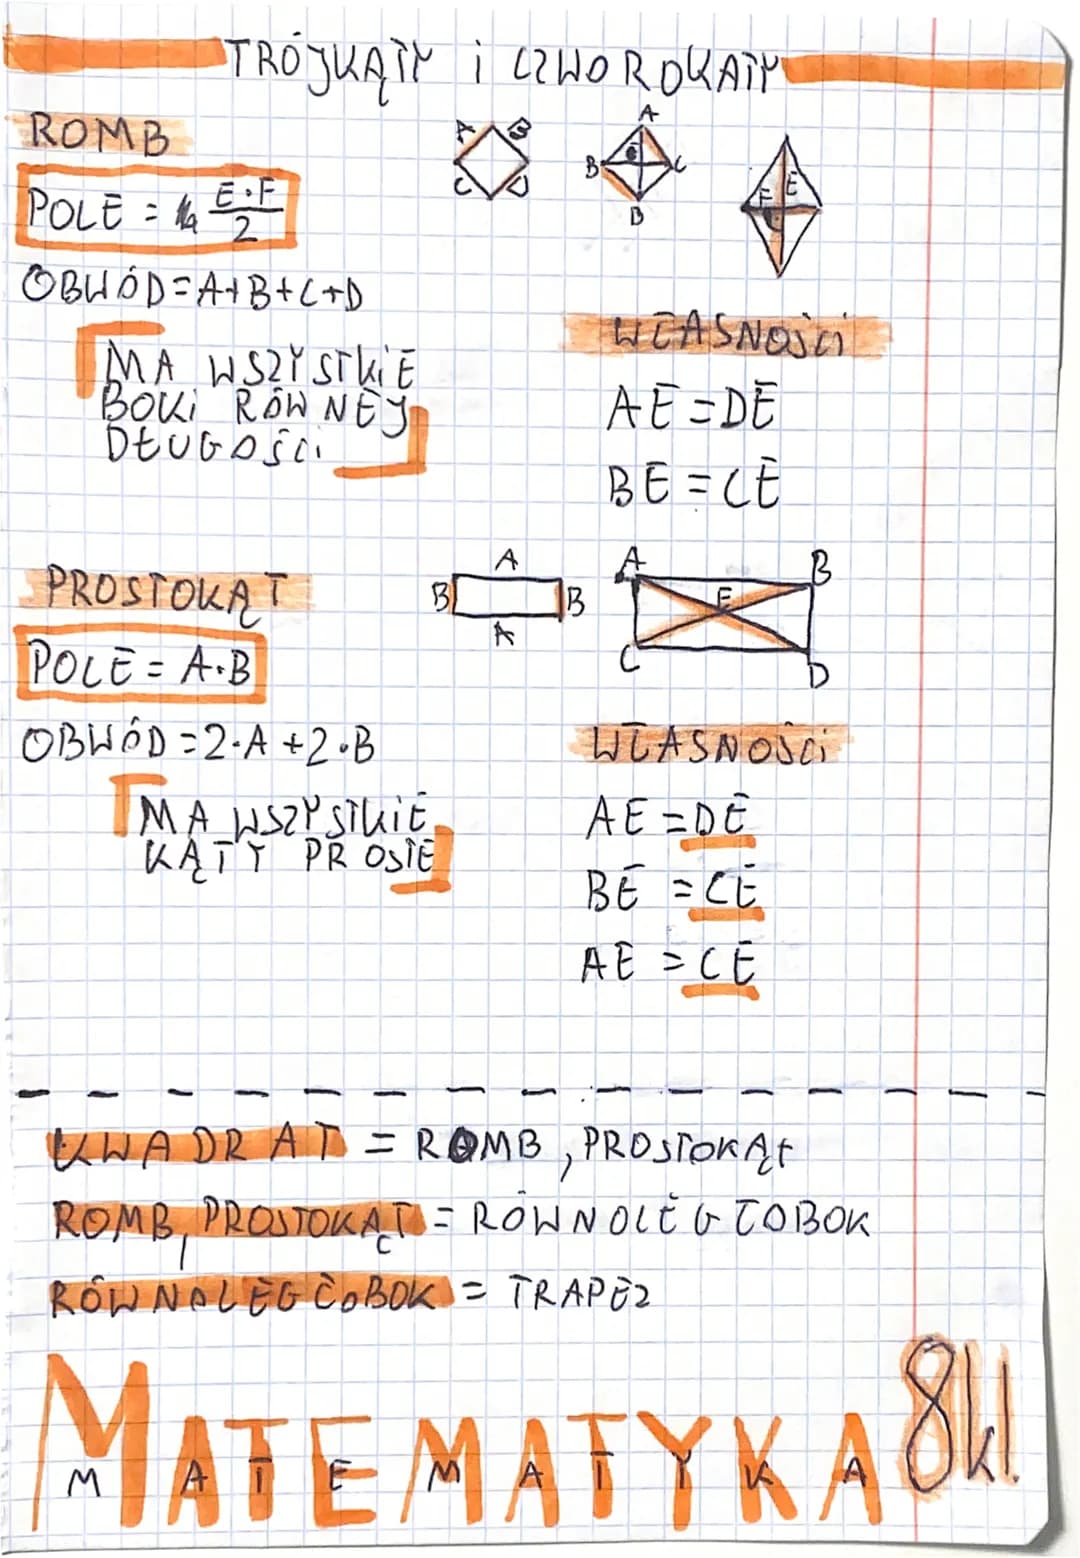 TRÓJKĄTY i CZWOROKĄTY
ROMB
A B
C D
A
B E C
D
F E
POLE = E·F
2
OBWÓD = A+B+C+D
MA WSZYSTKIE
BOKI RÓWNEJ
DŁUGOŚCI
WŁASNOŚCI
AE = DE
BE = CE
PROSTOKĄT
A
B B
A
A B
E
C D
POLE = A·B
OBWÓD = 2·A + 2·B
MA WSZYSTKIE
KĄTY PROSTE
WŁASNOŚCI
AE = DE
BE = CE
AE = CE
KWADRAT = ROMB, PROSTOKĄt
ROMB, PROSTOKĄT = RÓWNOLEGŁOBOK
RÓWNOLEGŁOBOK = TRAPEZ
MATEMATYKA 8kl.
MATEMATYKA